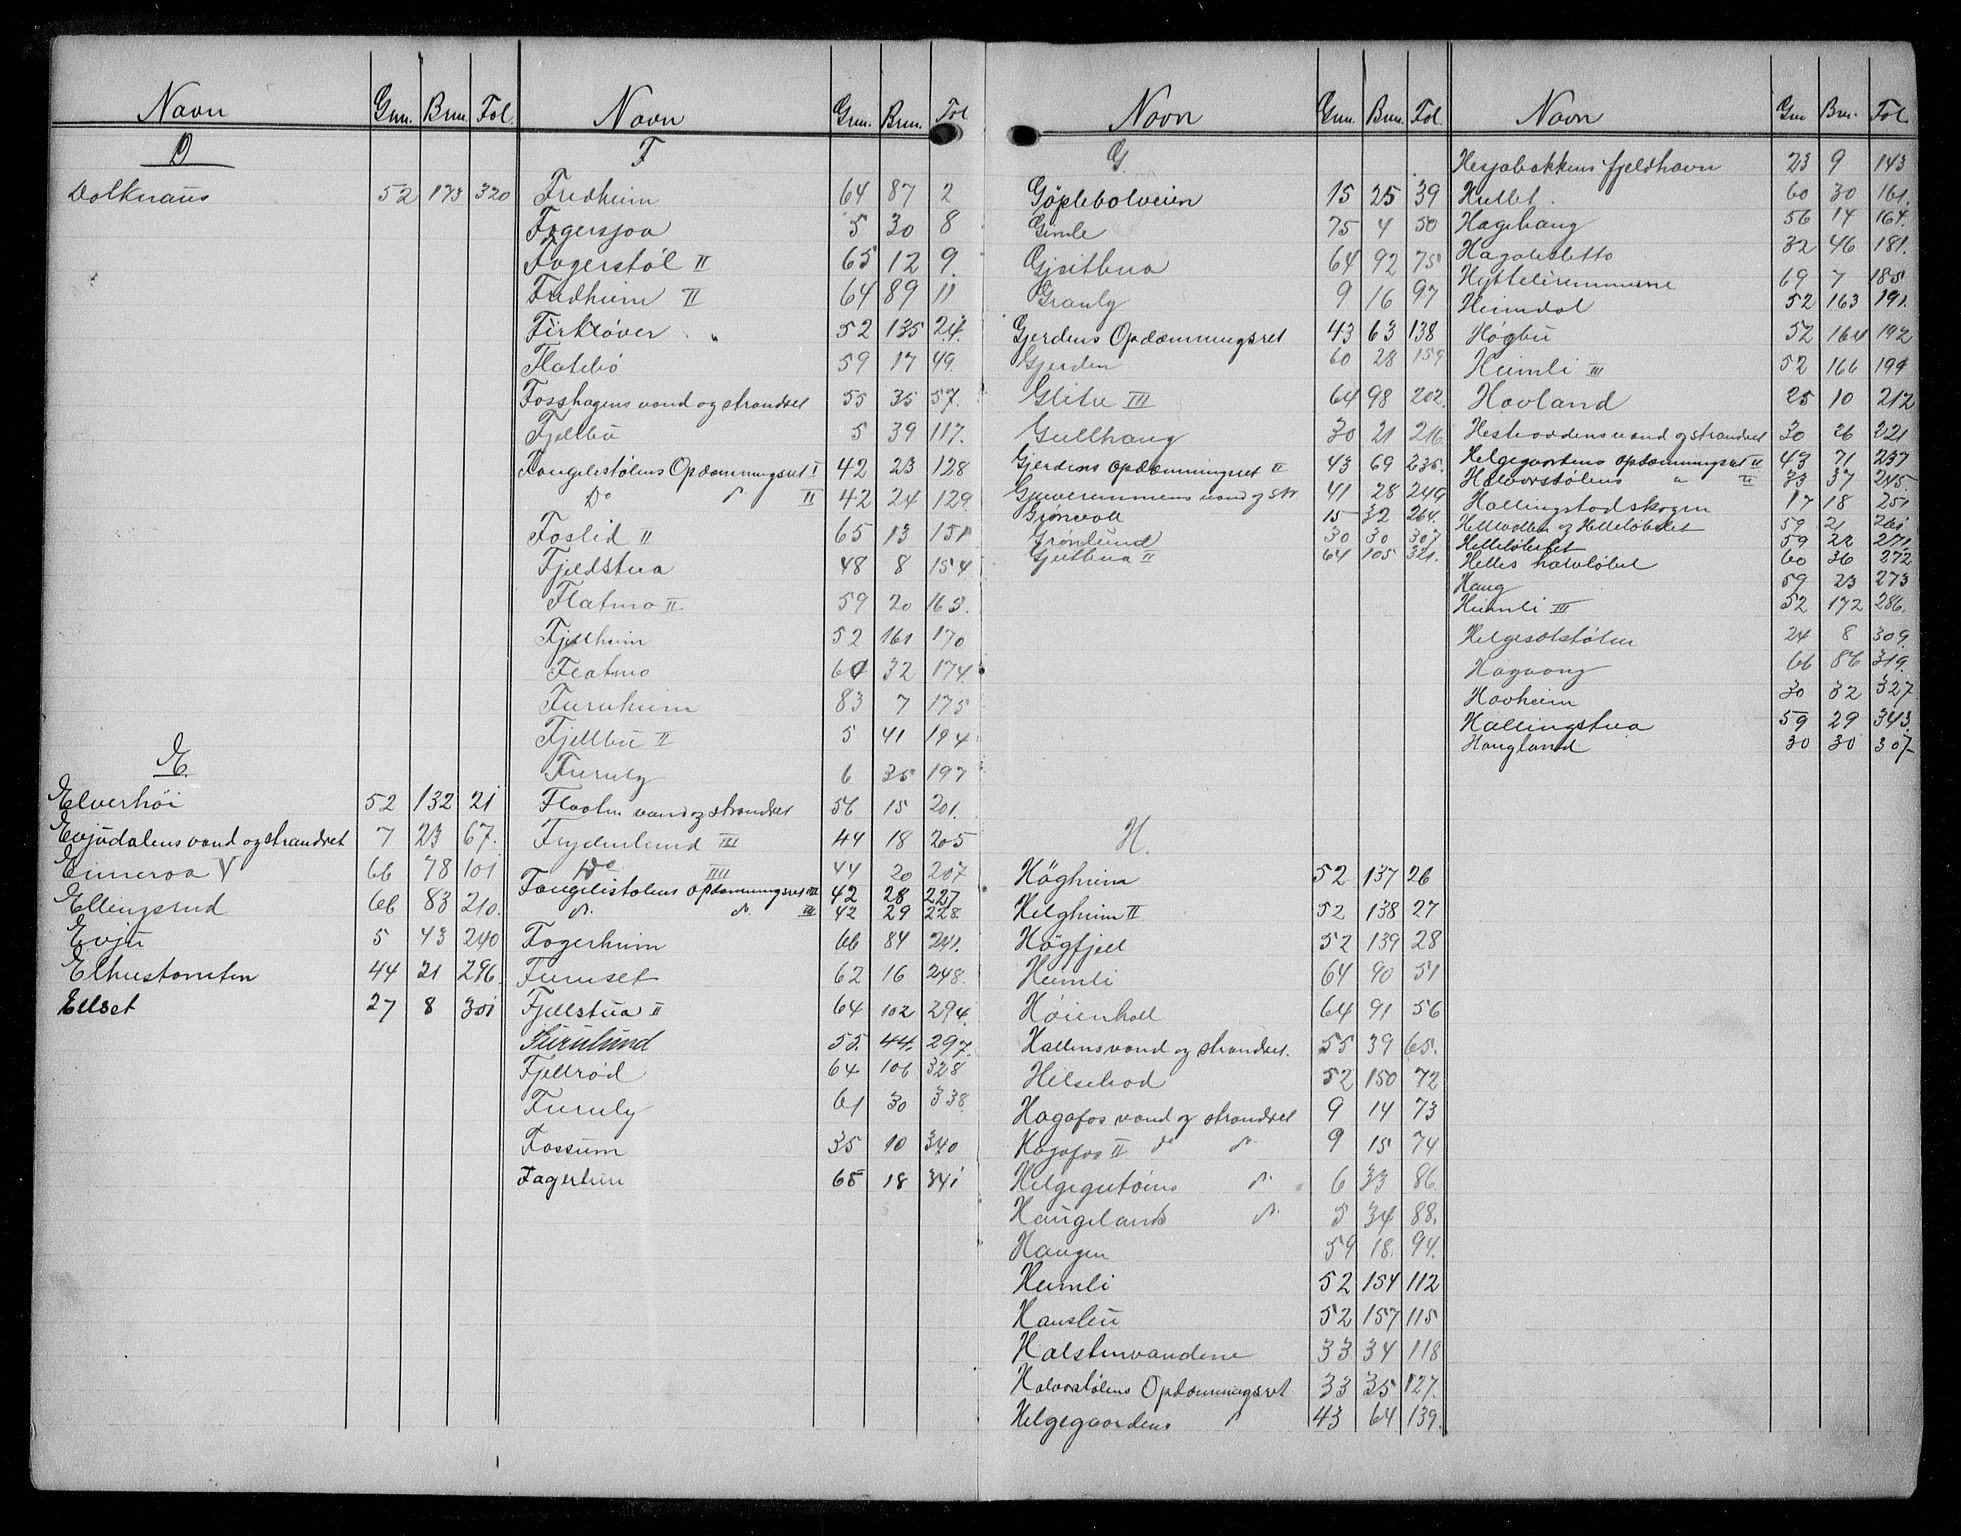 Navn Gnr. Bnr. Fol.
D
Dolknaus 52 173 320
E
Elverhöi 52 132 21
Evjudalens vand og strandret 7 23 67.
Eimeroa V 66 78 101
Ellingsrud 66 83 210.
Evju 5 43 240
Elhustomten 44 21 296.
Ellset 27 8 301
Navn Gnr. Bnr. Fol
F
Fredheim 64 87 2
Fagersjoa 5 30 8
Fagerstøl II 65 12 9.
Fredheim II 64 89 11
Firkløver 52 135 24.
Flatebö 59 17 49.
Fosshagens vand og strandret 55 35 57.
Fjellbu 5 39 117.
Fangelistølens Opdæmningsret I 42 23 128
Do " II 42 24 129.
Foslid II 65 13 151
Fjeldstua 48 8 154
Flatmo II 59 20 165.
Fjellheim 52 161 170
Flatmo 60 32 174.
Furuheim 83 7 175
Fjellbu II 5 41 194
Furuly 6 35 197
Flaaten vand og strandret 56 15 201.
Frydenlund III 44 18 205
Do IIII 44 20 207
Fangelistølens opdæmningsret III 42 28 227
" " III 42 29 228.
Fagerheim 66 84 241.
Furuset 62 16 248.
Fjellstua II 64 102 294.
Furulund 55. 44. 297.
Fjellrød 64 106 328
Furuly 61 30 338.
Fossum 35 10 340
Fagerheim 65 18 341
Navn Gnr. Bnr. Fol.
G.
Göplebolveien 15 25 39
Gimle 75 4 50
Gjeitbua 64 92 75
Granly 9 16 97
Gjerdens Opdæmningsret 43 63 138
Gjerden 60 28 159
Glitre III 64 98 202.
Gullhaug 30 21 216
Gjerdens opdæmningsret II 43 69 235.
Gjuveremmens vand og str. 41 28 249
Grönvoll 15 32 264.
Grønlund 30 30 307
Gjeitbua II 64 105 321.
H.
Högheim 52 137 26
Helgheim II 52 138 27
Högfjell 52 139 28
Heimli 64 90 51
Høienhall 64 91 56
Hallens vand og strandret. 55 39 65.
Hilsebod 52 150 72
Hagafos vand og strandret 9 14 73
Hagafos II do " 9 15 74
Helgegutöins " 6 33 86.
Haugelands " 5 34 88.
Haugen 59 18. 94.
Heimli 52 154 112
Hansleu 52 157 115
Halstenvandene 33 34 118
Halvorstølens Opdæmningsret 33 35 127.
Helgegaardens " 43 64 139.
Navn Gnr Bnr. Fol.
Hesjabakkens fjeldhavn 23 9 143
Hullet 60 30 161.
Hagehaug 56 14 164.
Hagaletto 32 46 181.
Hytteliremmerne 69 7 185
Heimdal 52 163 191.
Høgbu 52 164 192
Heimli III 52 166 199
Hovland 25 10 212
Hestroddens vand og strandret 30 26 221
Helgegaardens opdæmningsret II 43 71 237
Halvorstølens " II 33 37 245.
Hallingstadskogen 17 18 251
Hellevollen og Helleløbeket 59 21 261.
Helleløbeket 59 22 271.
Helles halvløbet 60 36 272
Haug 59 23 273
Heimli III 52 172 286.
Helgesetstølen 24 8 309.
Hagaaug 66 86 319.
Hovheim 30 32 327
Hallingstua 59 29 343.
Haugland 30 30 307-